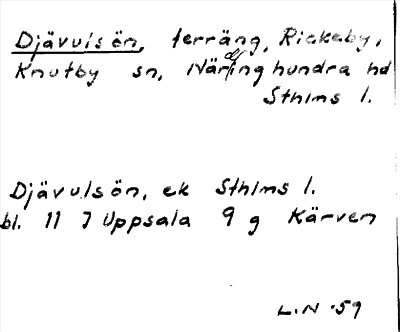 Djävulsön, terräng, Rickeby,
Knutby sn, Närdinghundra hd
Sthlms l.
Djävulsön, ek Sthlms l.
bl. 11 I Uppsala 9 g Kärven
L.N -59